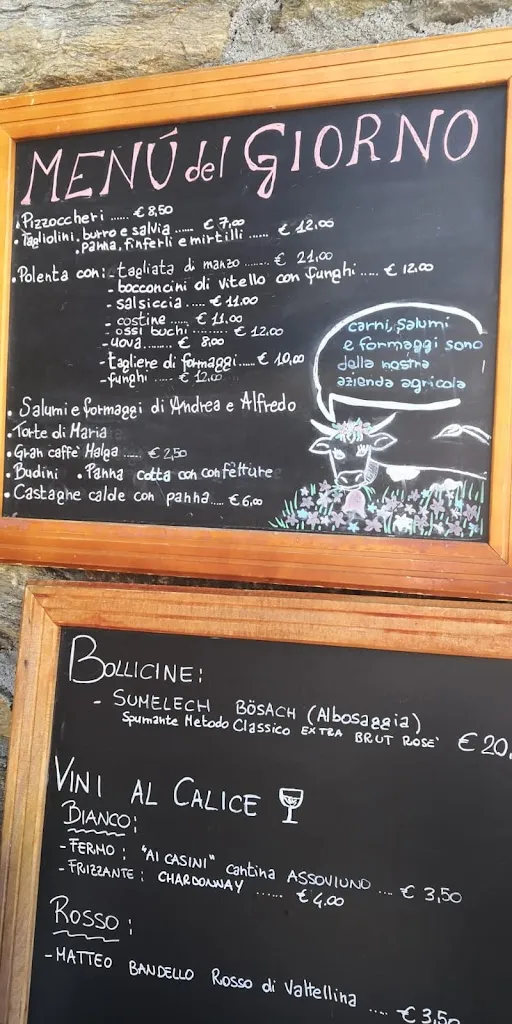 MENÚ del GIORNO
• Pizzoccheri ...... € 8,50
• Tagliolini, burro e salvia ...... € 7,00
• panna, finferli e mirtilli ...... € 12,00
• Polenta con: - tagliata di manzo ........ € 21,00
- bocconcini di vitello con funghi .... € 12,00
- salsiccia ..... € 11.00
- costine .... € 11.00
- ossi buchi ......... € 12,00
- uova ........ € 8,00
- tagliere di formaggi .... € 10,00
- funghi ..... € 12,00
carni, salumi
e formaggi sono
della nostra
azienda agricola
• Salumi e formaggi di Andrea e Alfredo
• Torte di Maria
• Gran caffè Malga ..... € 2,50
• Budini • Panna cotta con confetture
• Castagne calde con panna .... € 6,00
BOLLICINE:
- SUMELECH BÖSACH (Albosaggia)
Spumante Metodo Classico EXTRA BRUT ROSE' € 20,
VINI AL CALICE
BIANCO:
- FERMO: "AI CASINI" cantina ASSOVIUNO ... € 3,50
- FRIZZANTE: CHARDONNAY ...... € 4,00
ROSSO:
- MATTEO BANDELLO Rosso di Valtellina .... € 3,50